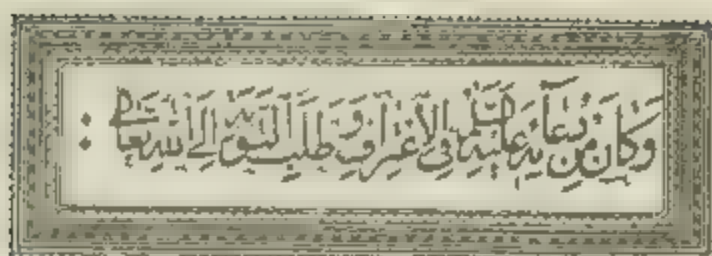 وَكَانَ مِنْ دُعَائِهِ عَلَيْهِ السَّلَامُ فِي الْاِعْتِرَافِ وَطَلَبِ التَّوْبَةِ اِلَى اللّٰهِ تَعَالٰى :